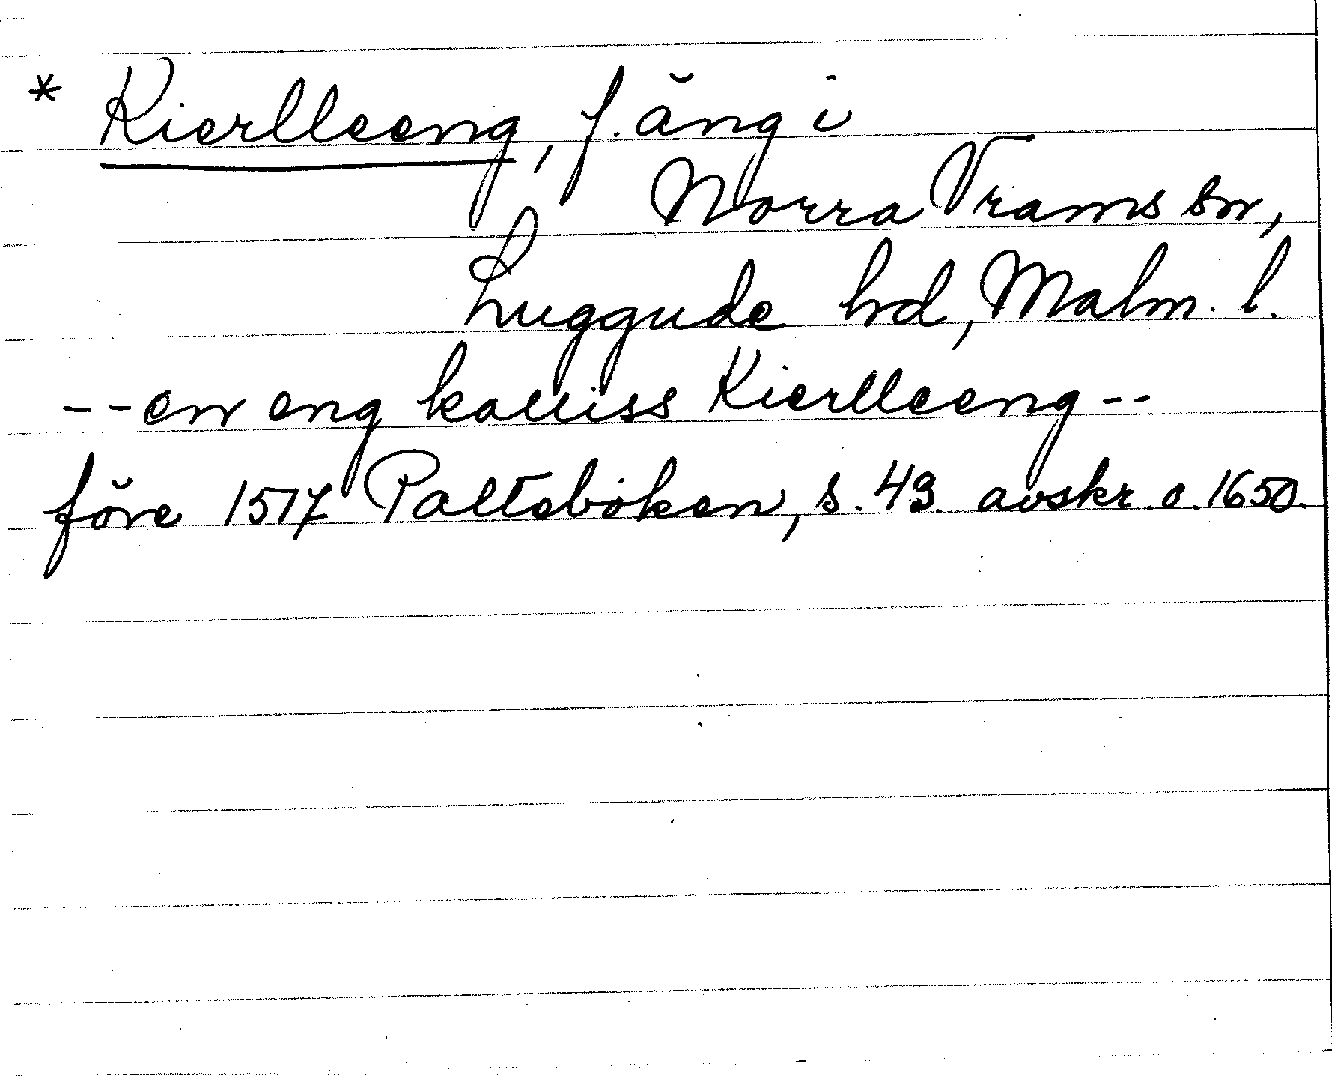 * Kierlleeng, f. äng i
Norra Vrams sn,
Luggude hd, Malm. l.
--en eng kalliss Kierlleeng--
före 1517 Palteboken, s. 43 avskr. o. 1650.